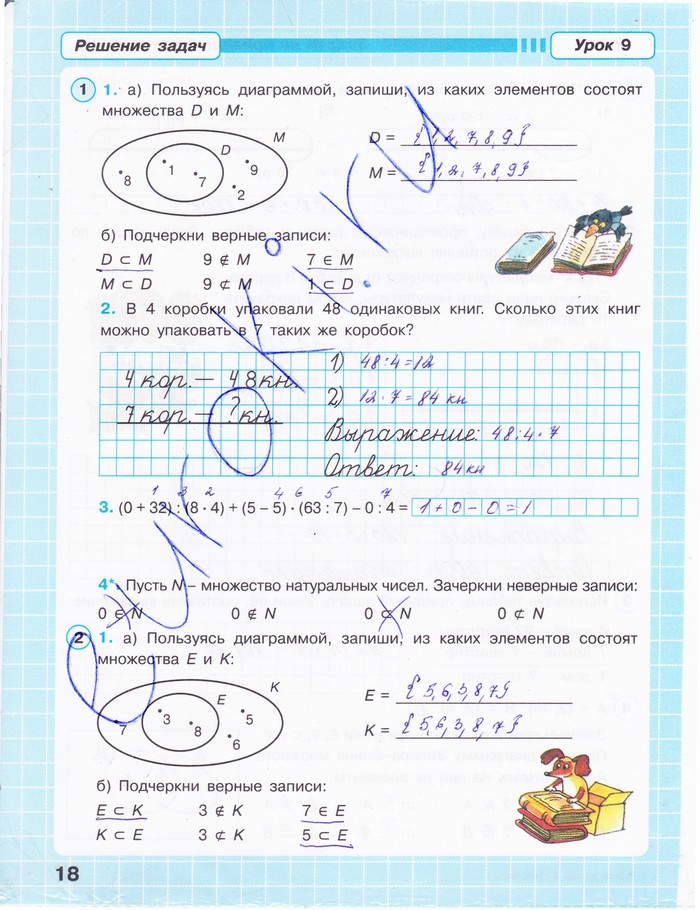 Решение задач
Урок 9
1 1. а) Пользуясь диаграммой, запиши, из каких элементов состоят
множества D и M:
M
D
8 1 7 9 2
D = { 1, 2, 7, 8, 9}
M = { 1, 2, 7, 8, 9}
б) Подчеркни верные записи:
D ⊂ M 9 ∉ M 7 ∈ M
M ⊂ D 9 ⊄ M 1 ⊂ D
2. В 4 коробки упаковали 48 одинаковых книг. Сколько этих книг
можно упаковать в 7 таких же коробок?
4 кор. — 48 кн.
7 кор. — ? кн.
1) 48:4=12
2) 12·7=84 кн
Выражение: 48:4·7
Ответ: 84 кн
1 3 2 4 6 5 7
3. (0 + 32) : (8 · 4) + (5 – 5) · (63 : 7) – 0 : 4 = 1+0-0=1
4*. Пусть N – множество натуральных чисел. Зачеркни неверные записи:
0 ∈ N 0 ∉ N 0 ⊂ N 0 ⊄ N
2 1. а) Пользуясь диаграммой, запиши, из каких элементов состоят
множества E и K:
K
E
7 3 8 5 6
E = { 5, 6, 3, 8, 7}
K = { 5, 6, 3, 8, 7}
б) Подчеркни верные записи:
E ⊂ K 3 ∉ K 7 ∈ E
K ⊂ E 3 ⊄ K 5 ⊂ E
18
euroki.ru